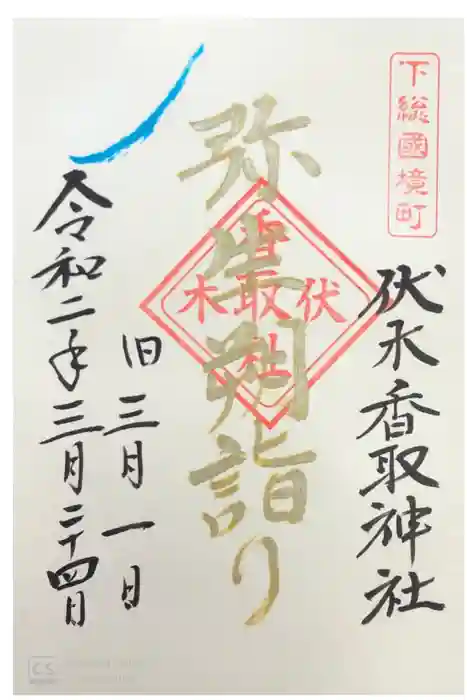 下総國境町
伏木香取神社
弥生朔詣り
伏木
香取社
旧三月一日
令和二年三月二十四日
CS